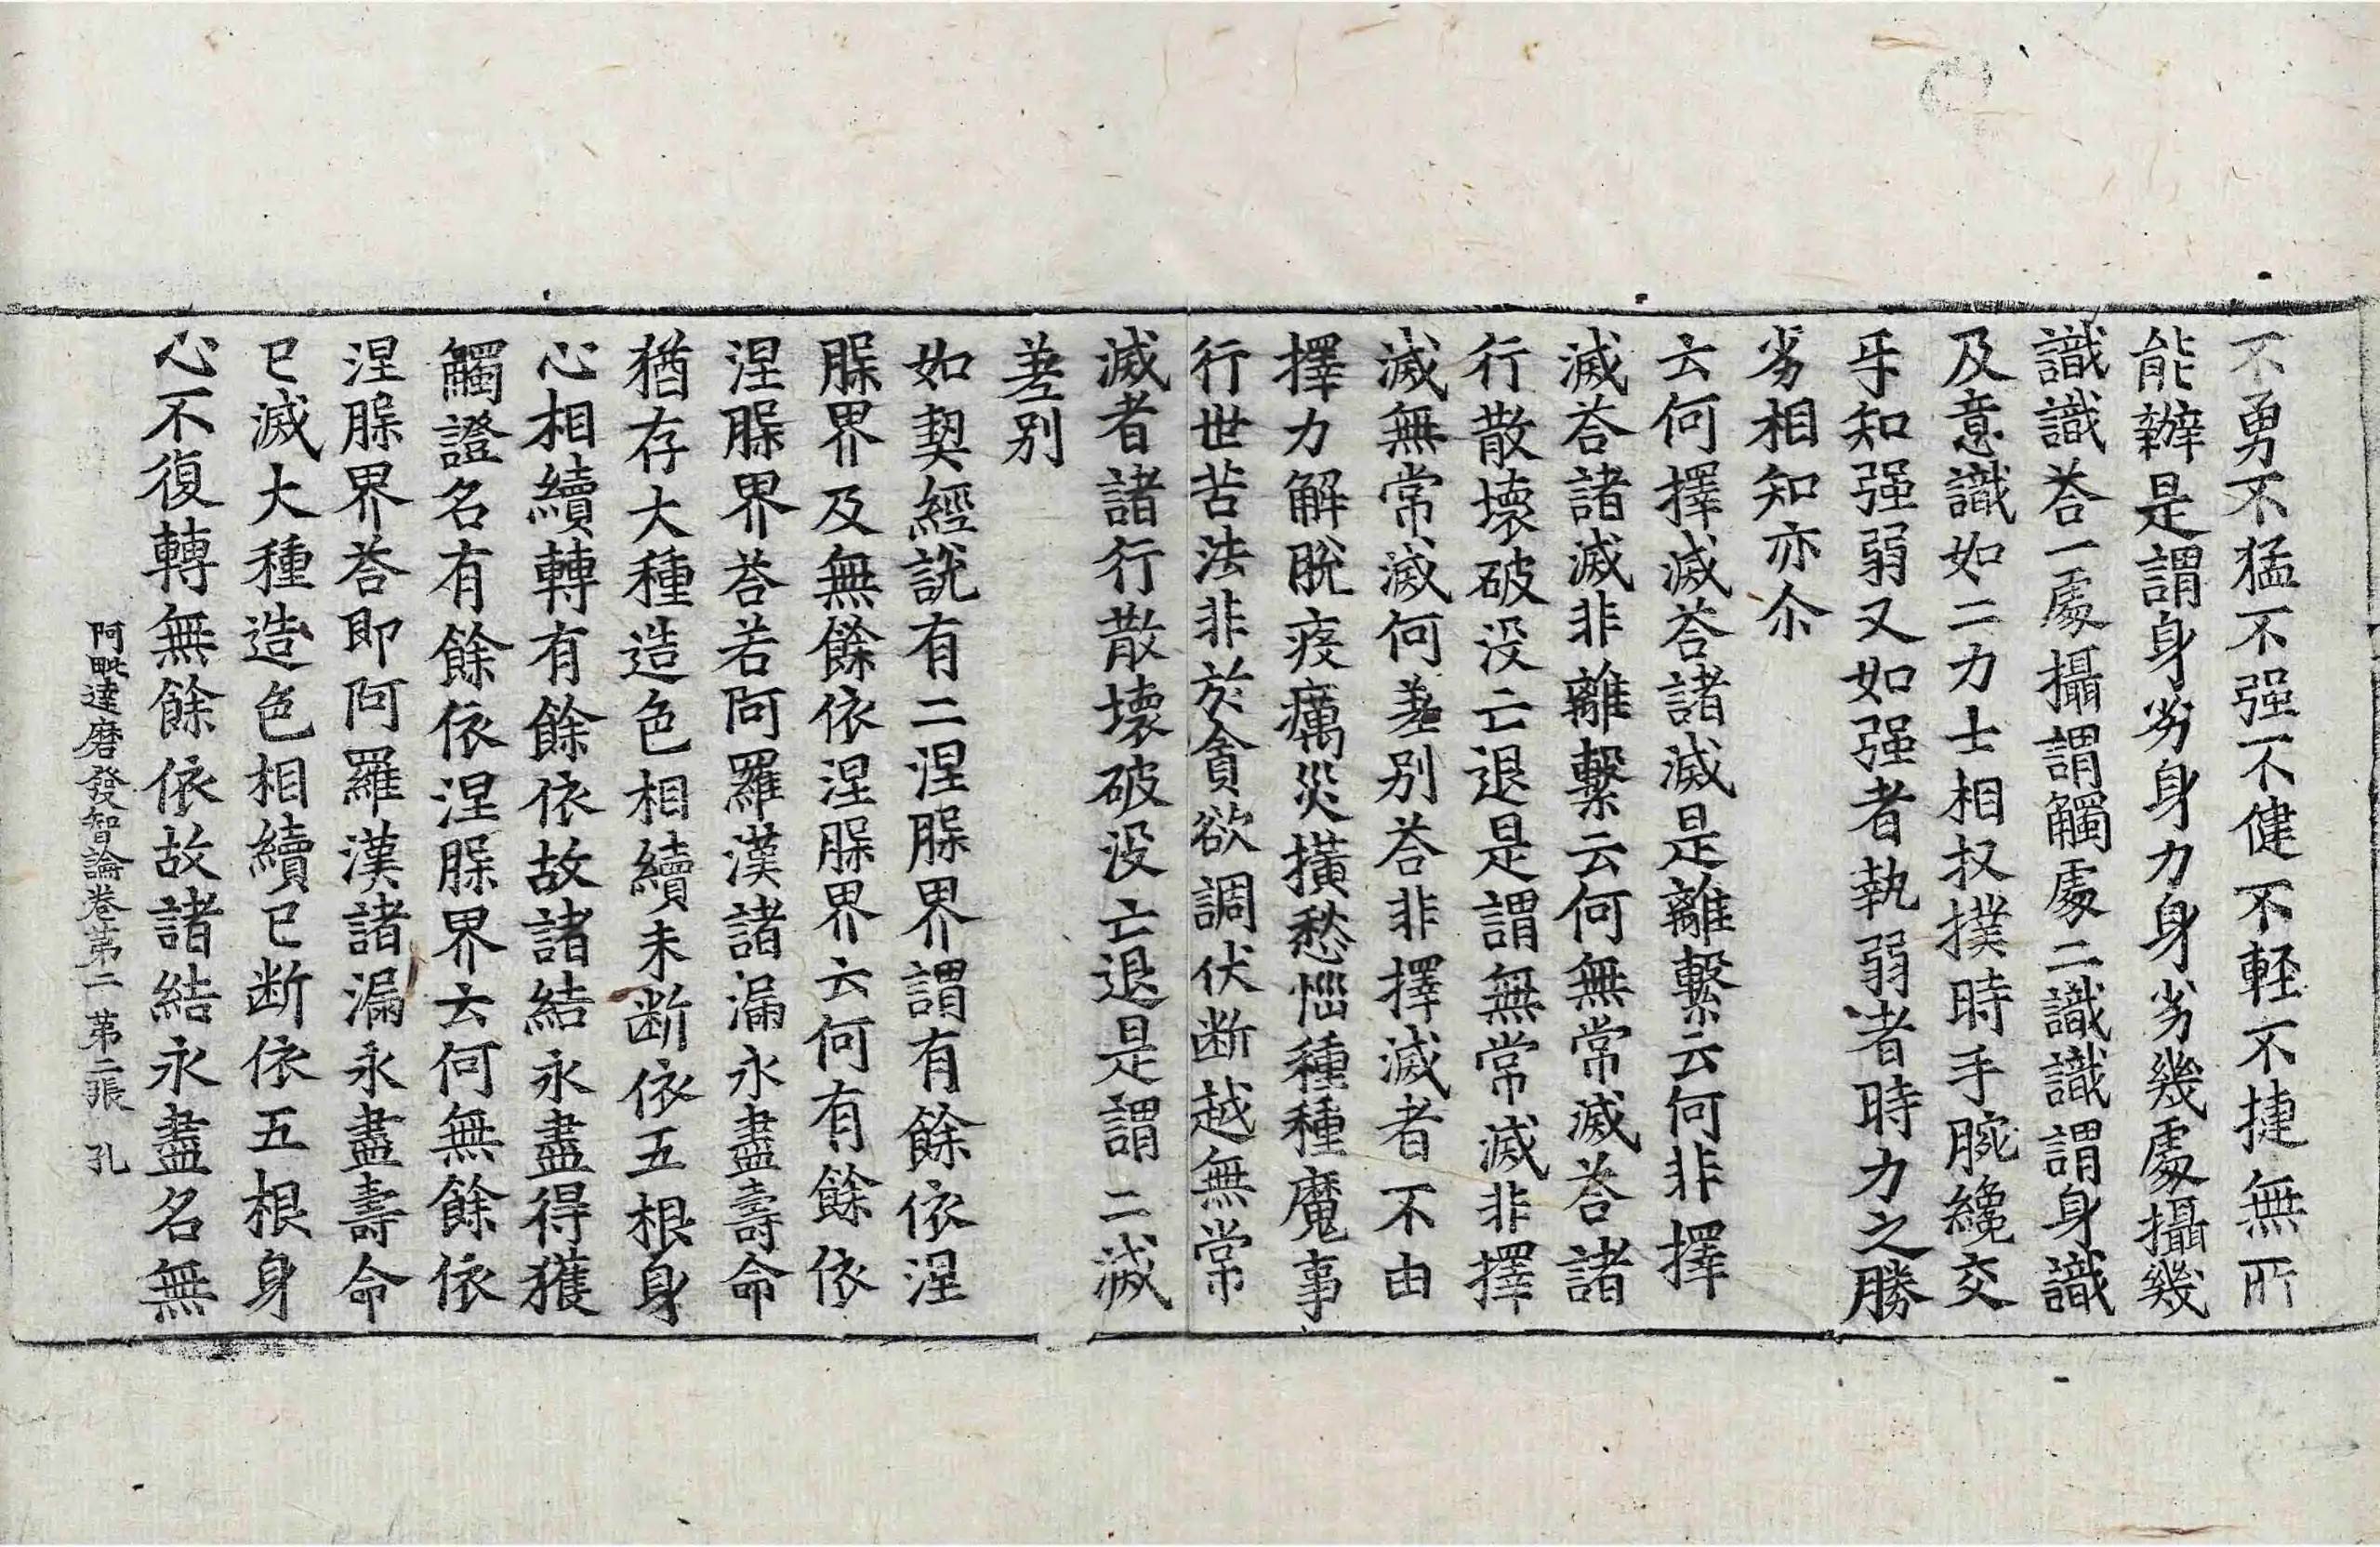 不勇不猛不强不健不軽不捷無所
能辦是謂身劣身力身劣幾處攝幾
識識荅一處攝謂觸處二識識謂身識
及意識如二力士相扠撲時手腕纔交
手知强弱又如强者執弱者時力之勝
劣相知亦尒
云何擇滅荅諸滅是離繫云何非擇
滅荅諸滅非離繫云何無常滅荅諸
行散壞破没亡退是謂無常滅非擇
滅無常滅何差别荅非擇滅者不由
擇力解脫疫癘災橫愁惱種種魔事
行世苦法非於貪欲調伏断越無常
滅者諸行散壞破没亡退是謂二滅
差别
如契經說有二涅槃界謂有餘依涅
槃界及無餘依涅槃界云何有餘依
涅槃界荅若阿羅漢諸漏永盡壽命
猶存大種造色相續未断依五根身
心相續轉有餘依故諸結永盡得獲
觸證名有餘依涅槃界云何無餘依
涅槃界荅即阿羅漢諸漏永盡壽命
已滅大種造色相續已断依五根身
心不復轉無餘依故諸結永盡名無
阿毗達磨發智論卷第二 第二張 孔